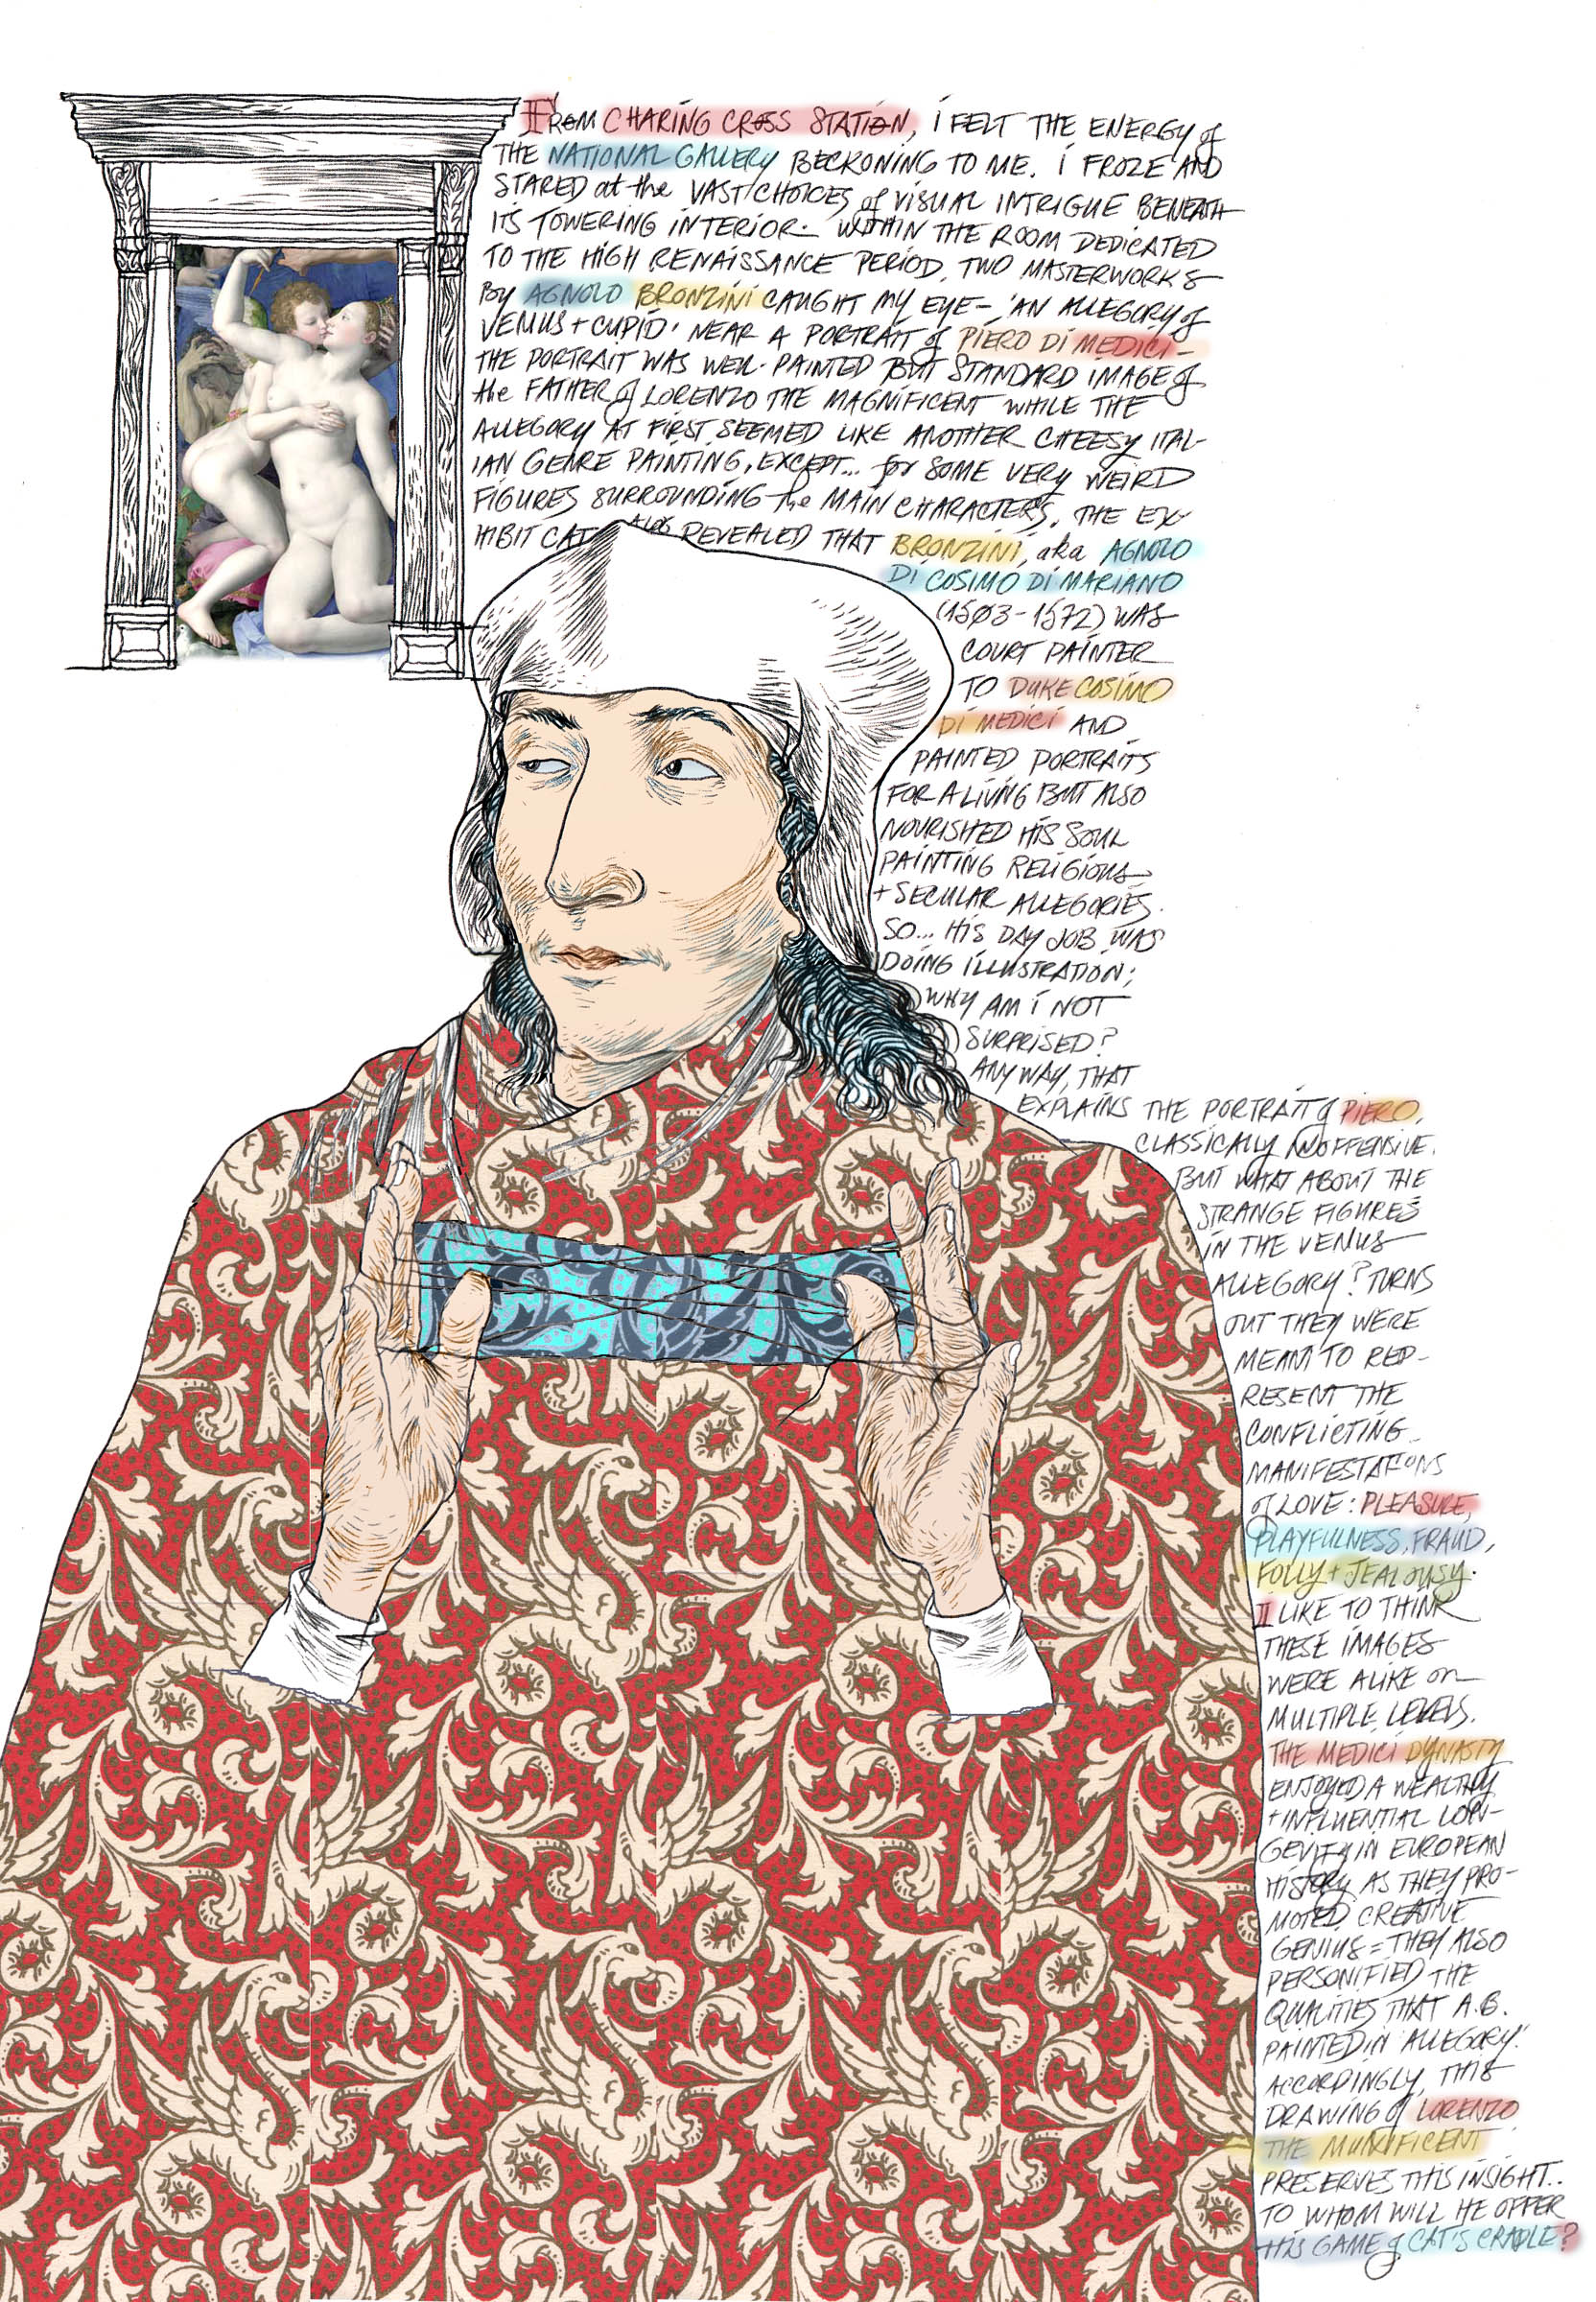 FROM CHARING CROSS STATION, I FELT THE ENERGY of
THE NATIONAL GALLERY BECKONING TO ME. I FROZE AND
STARED at the VAST CHOICES of VISUAL INTRIGUE BENEATH
ITS TOWERING INTERIOR. WITHIN THE ROOM DEDICATED
TO THE HIGH RENAISSANCE PERIOD, TWO MASTERWORKS
By AGNOLO BRONZINI CAUGHT MY EYE- 'AN ALLEGORY of
VENUS + CUPID' NEAR A PORTRAIT of PIERO DI MEDICI-
THE PORTRAIT WAS WELL-PAINTED BUT STANDARD IMAGE of
the FATHER of LORENZO THE MAGNIFICENT WHILE THE
ALLEGORY AT FIRST SEEMED LIKE ANOTHER CHEESY ITAL-
IAN GENRE PAINTING, EXCEPT... for SOME VERY WEIRD
FIGURES SURROUNDING the MAIN CHARACTERS. THE EX-
HIBIT CATALOG REVEALED THAT BRONZINI, aka AGNOLO
DI COSIMO DI MARIANO
(1503-1572) WAS
COURT PAINTER
TO DUKE COSIMO
DI MEDICI AND
PAINTED PORTRAITS
FOR A LIVING BUT ALSO
NOURISHED HIS SOUL
PAINTING RELIGIOUS
+ SECULAR ALLEGORIES.
SO... HIS DAY JOB WAS
DOING ILLUSTRATION;
WHY AM I NOT
SURPRISED?
ANYWAY, THAT
EXPLAINS THE PORTRAIT of PIERO,
CLASSICALLY INOFFENSIVE.
BUT WHAT ABOUT THE
STRANGE FIGURES
IN THE VENUS
ALLEGORY? TURNS
OUT THEY WERE
MEANT TO REP-
RESENT THE
CONFLICTING
MANIFESTATIONS
of LOVE: PLEASURE,
PLAYFULNESS, FRAUD,
FOLLY + JEALOUSY.
I LIKE TO THINK
THESE IMAGES
WERE ALIKE on
MULTIPLE LEVELS.
THE MEDICI DYNASTY
ENJOYED A WEALTHY
+ INFLUENTIAL LON-
GEVITY IN EUROPEAN
HISTORY AS THEY PRO-
MOTED CREATIVE
GENIUS = THEY ALSO
PERSONIFIED THE
QUALITIES THAT A.B.
PAINTED IN 'ALLEGORY.'
ACCORDINGLY, THIS
DRAWING of LORENZO
THE MUNIFICENT
PRESERVES THIS INSIGHT..
TO WHOM WILL HE OFFER
HIS GAME of CAT'S CRADLE?